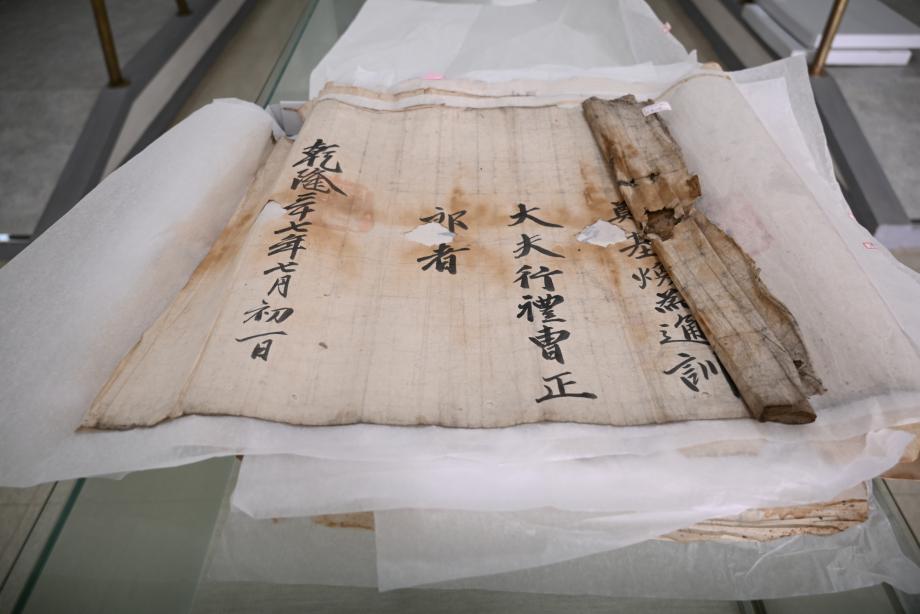 基煥爲通訓
大夫行禮曹正
郎者
乾隆三十七年七月初一日